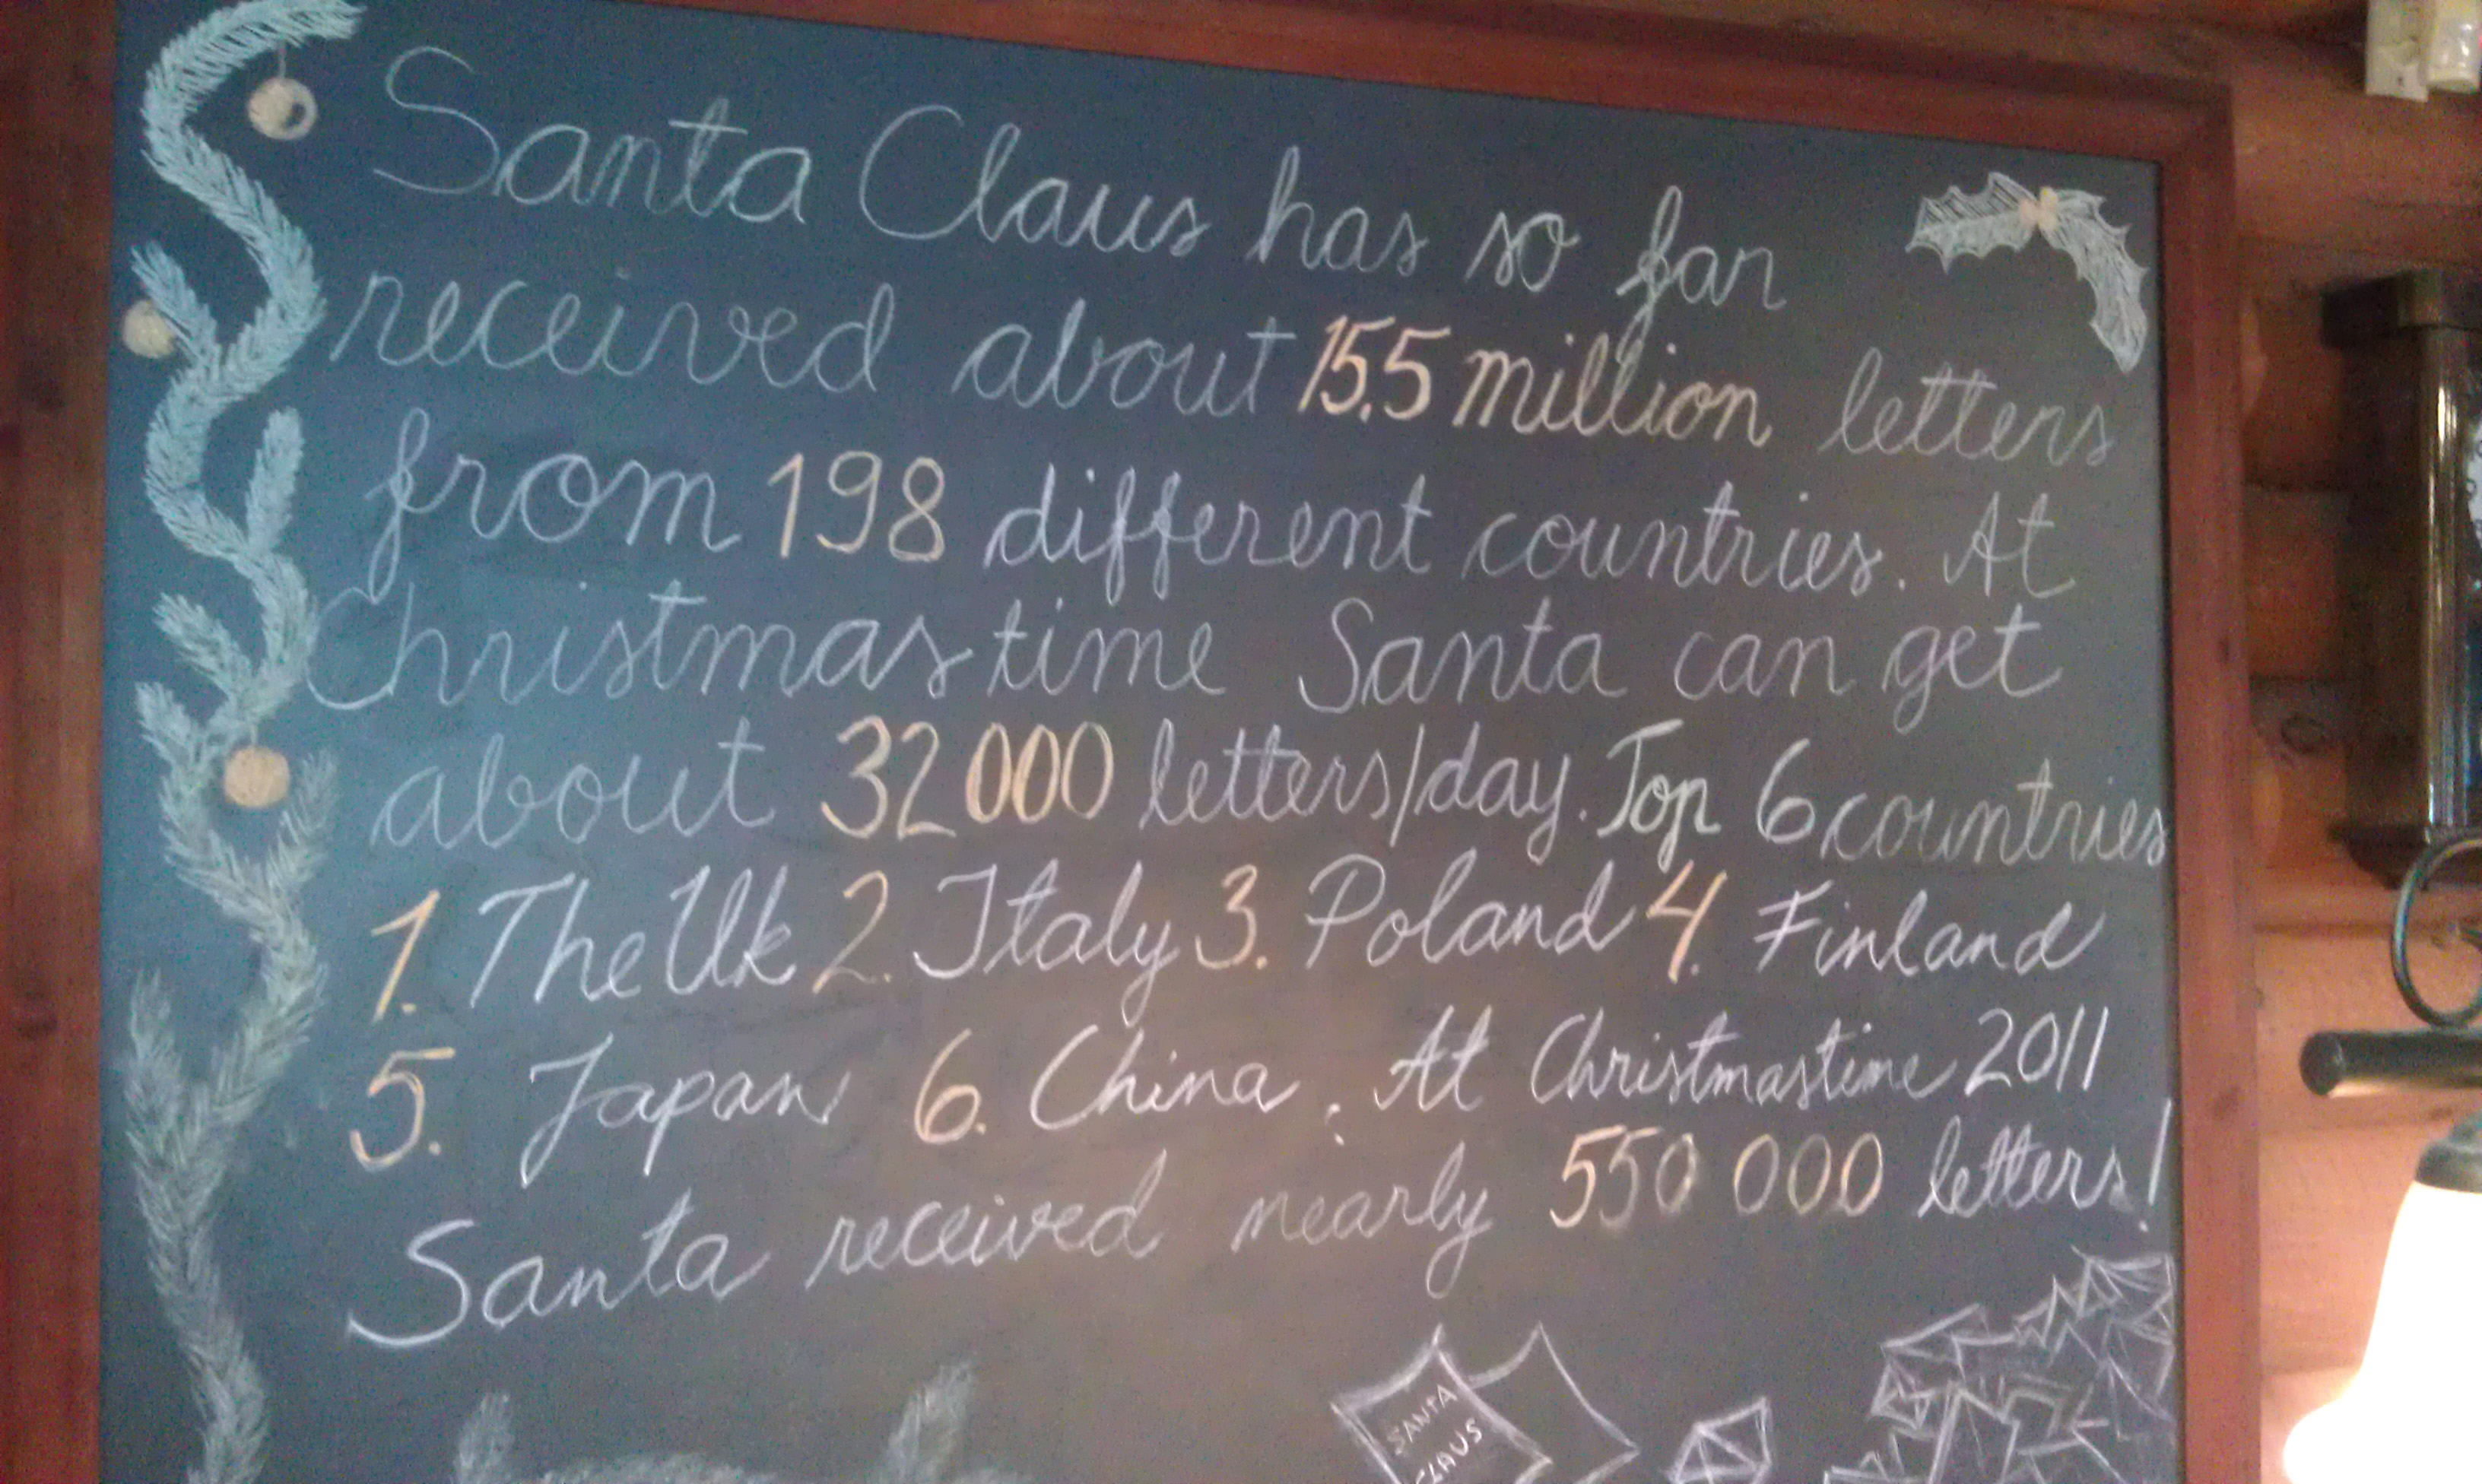 Santa Claus has so far
received about 15.5 million letters
from 198 different countries. At
Christmas time Santa can get
about 32 000 letters/day. Top 6 countries
1. The Uk 2. Italy 3. Poland 4. Finland
5. Japan 6. China. At Christmastime 2011
Santa received nearly 550 000 letters!
SANTA
CLAUS